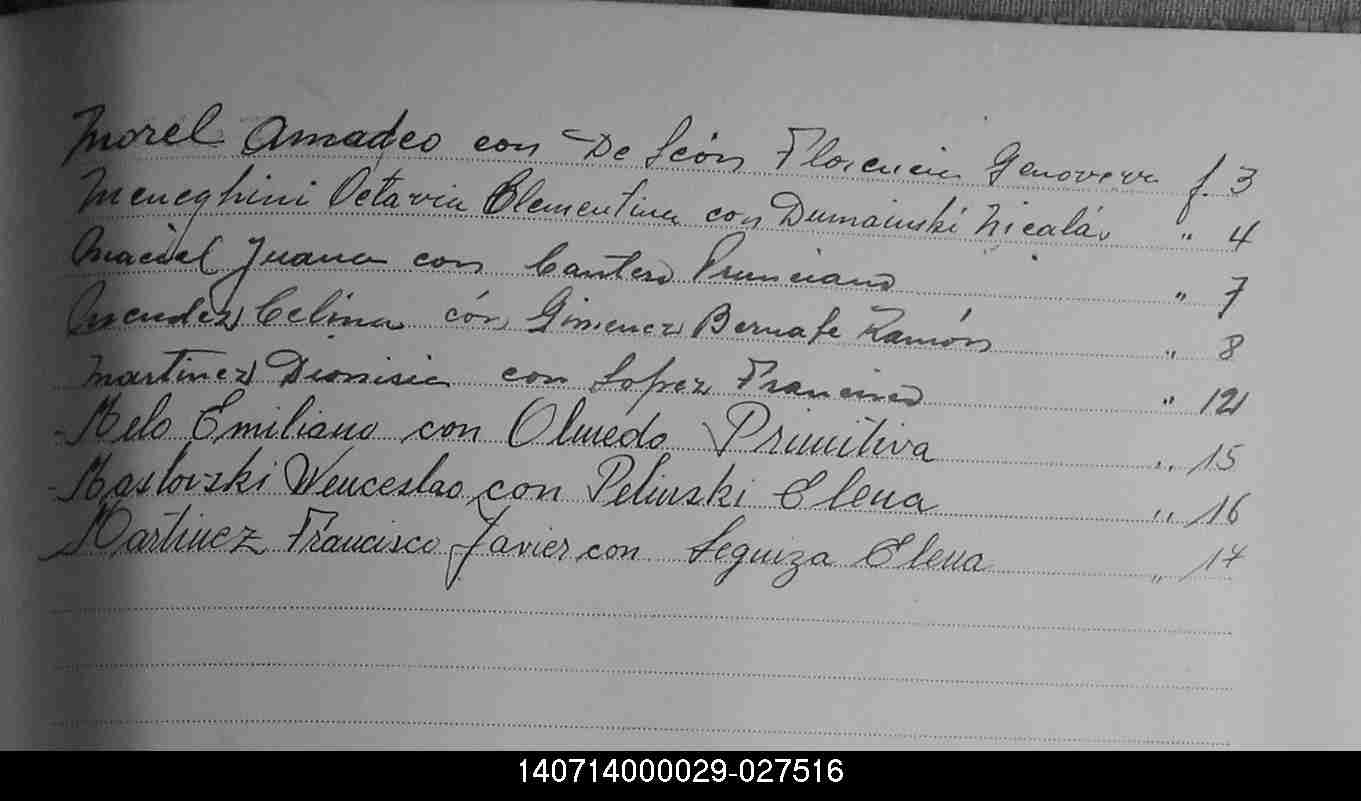 Morel Amadeo con De León Florencia Genoveva f. 3
Meneghini Octavia Clementina con Dumainski Nicolás " 4
Maciel Juana con Cantero Prunciano " 7
Mendez Celina cón Gimenez Bernabe Ramón " 8
Martinez Dionisia con Lopez Francisco " 12
Melo Emiliano con Olmedo Primitiva " 15
Maslovski Wenceslao con Pelinski Elena " 16
Martinez Francisco Javier con Seguiza Elena " 17
140714000029-027516